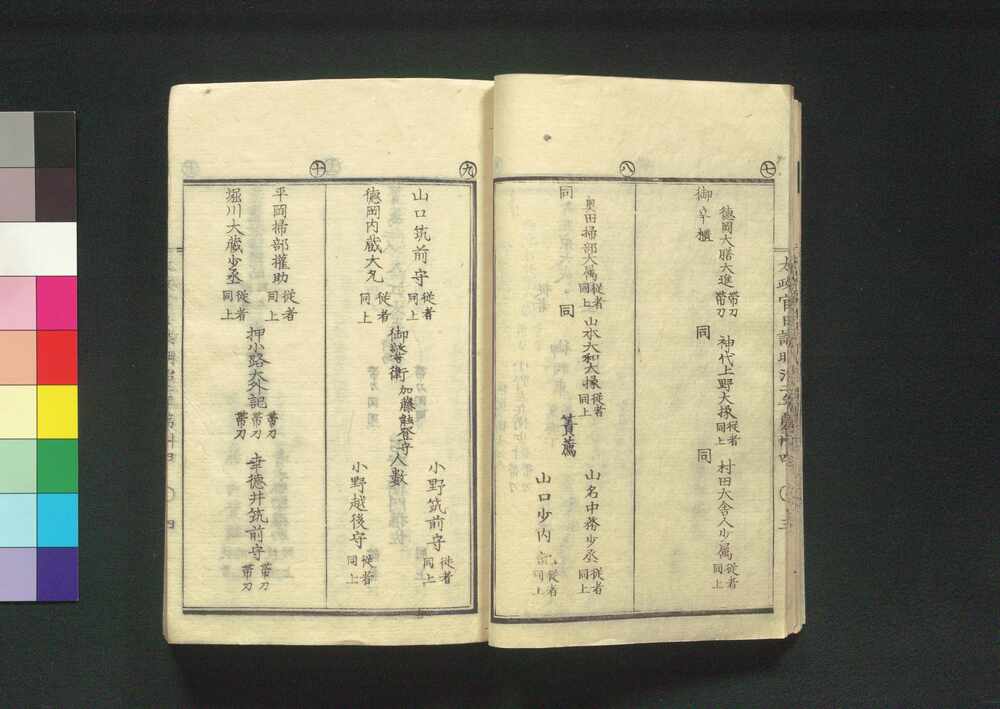 七
徳岡大膳大進 帯刀帯刀
御辛櫃
同
袖代上野大掾 従者同上
同
村田大舎人少属 従者同上
八
奥田掃部大属 従者同上
同
同
山水大和大掾 従者同上
簀薦
山名中務少丞 従者同上
山口少内記 従者同上
九
山口筑前守 従者同上
徳岡内蔵大允 従者同上
御警衛
加藤能登守人数
小野筑前守 従者同上
小野越後守 従者同上
十
平岡掃部権助 従者同上
堀川大蔵少丞 従者同上
押小路大外記 帯刀帯刀帯刀
幸徳井筑前守 帯刀帯刀
四